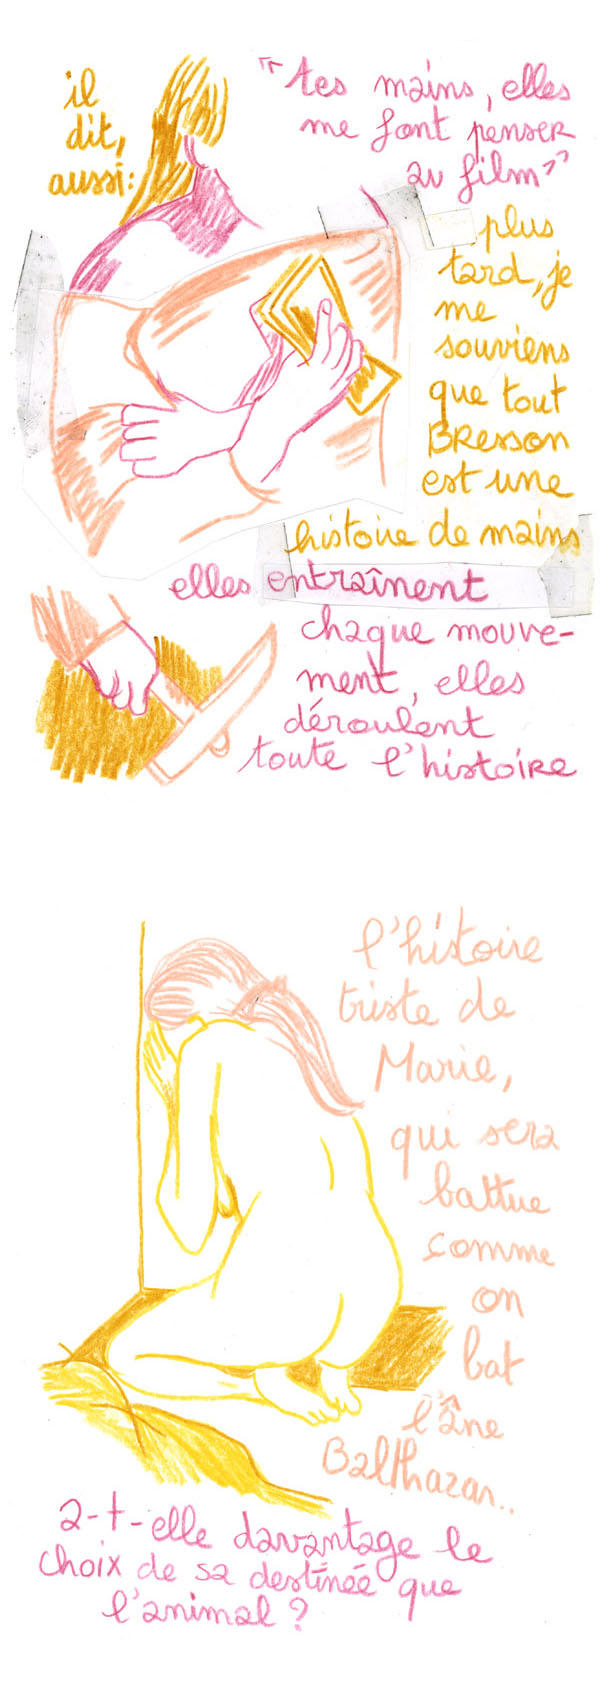 il
dit,
aussi:
"tes mains, elles
me font penser
au film"
plus
tard, je
me
souviens
que tout
BResson
est une
histoire de mains
elles entraînent
chaque mouve-
ment, elles
déroulent
toute l'histoire
l'histoire
triste de
Marie,
qui sera
battue
comme
on
bat
l'âne
Balthazar..
a-t-elle davantage le
choix de sa destinée que
l'animal ?